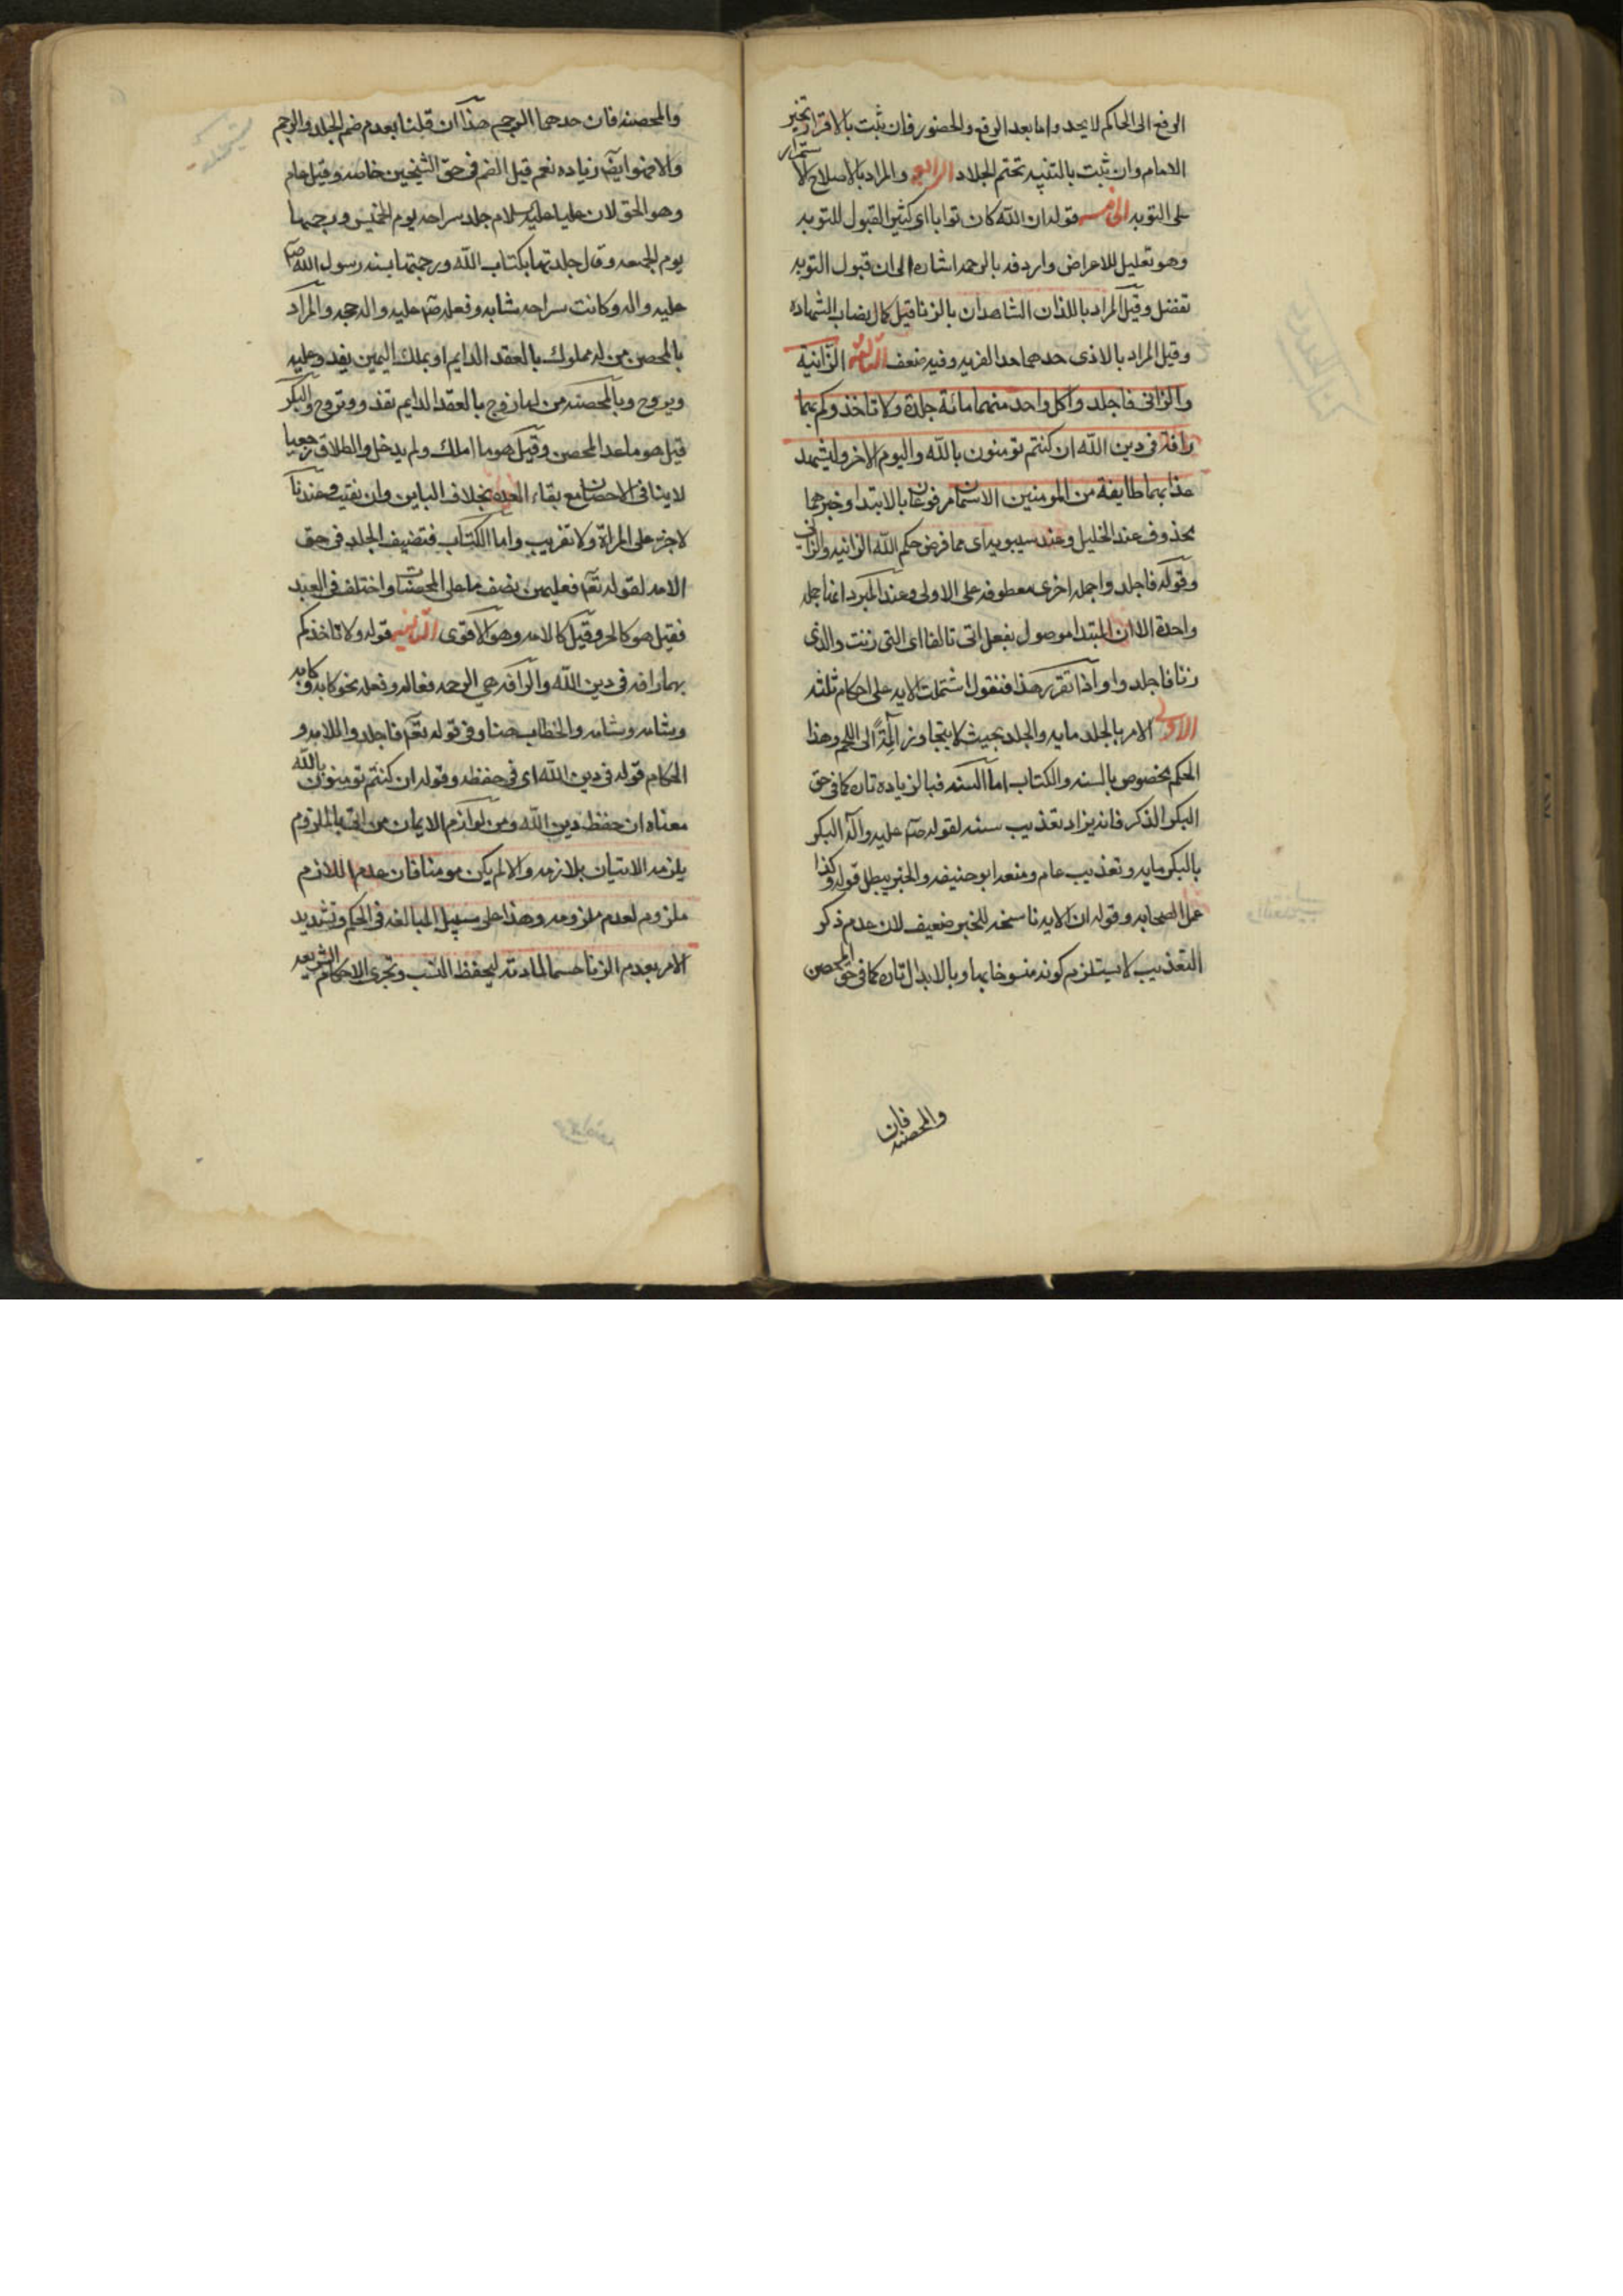 الرفع الى الحاكم لا يحد واما بعد الرفع والحضور فان ثبت بالاقرار تخير
الامام وان ثبت بالبينه تحتم الجلاد الرابع والمراد بالاصلاح الاستمرار
على التوبه الخامس قوله ان الله كان توابا اى كثير القبول للتوبه
وهو تعليل للاعراض واردفه بالرحمه اشاره الى ان قبول التوبه
تفضل وقيل المراد باللذان الشاهدان بالزنا قيل كمال نصاب الشهاده
وقيل المراد بالاذى حدهما حد الفريه وفيه ضعف الثالثه الزانية
والزانى فاجلدوا كل واحد منهما مائة جلدة ولا تاخذوكم بهما
رافة فى دين الله ان كنتم تومنون بالله واليوم الاخر وليشهد
عذابهما طايفة من المومنين الاسمان مرفوعان بالابتدا وخبرهما
محذوف عند الخليل وعند سيبويه اى مما فرض حكم الله الزانيه والزانى
وقوله فاجلدوا جمله اخرى معطوفه على الاولى وعند المبرد انها جمله
واحدة الا ان المبتدا موصول بفعل اتى تالفا اى التى زنت والذى
زنا فاجلدوا واذا تقرر هذا فنقول اشتملت الايه على احكام ثلثه
الاولى الامر بالجلد مايه والجلد بحيث لا يتجاوز المه الى اللحم وهذا
الحكم مخصوص بالسنه والكتاب اما السنه فبالزياده تاره كما فى حق
البكر الذكر فانه يزاد تعذيب سنه لقوله صلم عليه واله البكر
بالبكر مايه وتعذيب عام ومنعه ابو حنيفه والخبر يبطل قوله وكذا
عمل الصحابه وقوله ان الايه ناسخه للخبر ضعيف لان عدم ذكر
التعذيب لا يستلزم كونه منسوخا بها وبالابدال تاره كما فى حق المحصن
والمحصنه فان
والمحصنه فان حدهما الرجم هذا ان قلنا بعدم ضم الجلد والرجم
والا فهو ايضا زياده نعم قيل الضم فى حق الشيخين خاصه وقيل عام
وهو الحق لان عليا عليه سلام جلد سراحه يوم الخميس ورجمها
يوم الجمعه وقال جلدتها بكتاب الله ورجمتها بسنه رسول الله ص
عليه واله وكانت سراحه شابه وفعله صلم عليه واله حجه والمراد
بالمحصن من له مملوك بالعقد الدايم او بملك اليمين يغدو عليه
ويروح وبالمحصنه من لها زوج بالعقد الدايم تغذو وتروح والبكر
قيل هو ما عدا المحصن وقيل هو ما املك ولم يدخل والطلاق رجعيا
لا ينافى الاحصان مع بقاء العده بخلاف الباين وان بقيت وعندنا
لا جز على المراة ولا تغريب واما الكتاب فتضيف الجلد فى حق
الامه لقوله تعم فعليهن نصف ما على المحصنات واختلف فى العبد
فقيل هو كالحر وقيل كالامه وهو الاقوى الثانيه قوله ولا تاخذكم
بهما رافه فى دين الله والرافه هى الرحمه فعاله وفعله نحو كابه وكابه
ونشاه ونشاءه والخطاب هنا وفى قوله تعم فاجلدوا للامه و
الحكام قوله فى دين الله اى فى حفظه وقوله ان كنتم تومنون بالله
معناه ان حفظ دين الله ومن لوازم الايمان من اتى بالملزوم
يلزمه الاتيان بلازمه والا لم يكن مومنا فان عدم اللازم
ملزوم لعدم ملزومه وهذا على سبيل المبالغه فى الحكم وتشديد
الامر بعدم الزنا حسما لمادته ليحفظ النسب وتجرى الاحكام الشرعيه